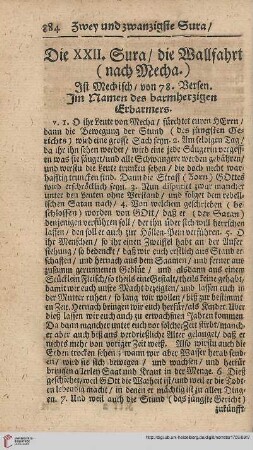 884 Zwey und zwanzigste Sura/
Die XXII. Sura/ die Wallfahrt
(nach Mecha.)
Ist Mechisch/ von 78. Versen.
Im Namen des barmherzigen
Erbarmers.
v. 1. O ihr Leute von Mecha/ fürchtet euren HErrn/
dann die Bewegung der Stund (des jüngsten Ge-
richts) wird eine grosse Sach seyn. 2. Am selbigen Tag/
da ihr ihn sehen werdet/ wird eine jede Säugerin vergess-
en was sie säuget/ und alle Schwangere werden gebähren/
und wirstu die Leute truncken sehen/ da sie doch nicht
warhafftig truncken sind. Dann die Straff (Zorn) GOttes
wird erschröcklich seyn. 3. Nun disputirt zwar mancher
unter den Leuten ohne Verstand/ und folget dem rebelli-
schen Satan nach/ 4. Von welchem geschrieben (be-
schlossen) worden von GOtt/ daß er (der Satan)
denjenigen verführen soll/ der ihn über sich will herrschen
lassen/ den soll er auch zur Höllen-Pein verführen. 5. O
ihr Menschen/ so ihr einen Zweifel habt an der Aufer-
stehung/ so bedenckt/ daß wir euch erstlich aus Staub er-
schaffen/ und hernach aus dem Saamen/ und ferner aus
zusamm geronnenen Geblüt/ und alsdann aus einem
Stücklein Fleisch/ so theils aus Gestalt/ theils keine gehabt/
damit wir euch unsre Macht bezeigten/ und lassen euch in
der Mutter ruhen/ so lang wir wollen/ biß zur bestimm-
ten Zeit. Hernach bringen wir euch herfür/ als Kinder. Aber
dieß lassen wir euch auch zu erwachsenen Jahren kommen.
Da dann mancher unter euch vor solcher Zeit stirbt/ mancher
aber auch biß aufs verdrießliche Alter gelanget/ daß er
nichts mehr von voriger Zeit weiß. Also wirstu auch die
Erden trocken sehen;
bringen allerley Saat und Kraut in der Menge. 6. Dieß
geschiehet/ weil GOtt die Warheit ist/ und weil er die Tod-
ten lebendig macht/ und weil er mächtig ist in allen Din-
gen. 7. Und weil auch die Stund (des jüngsten Gericht)
zukünfft